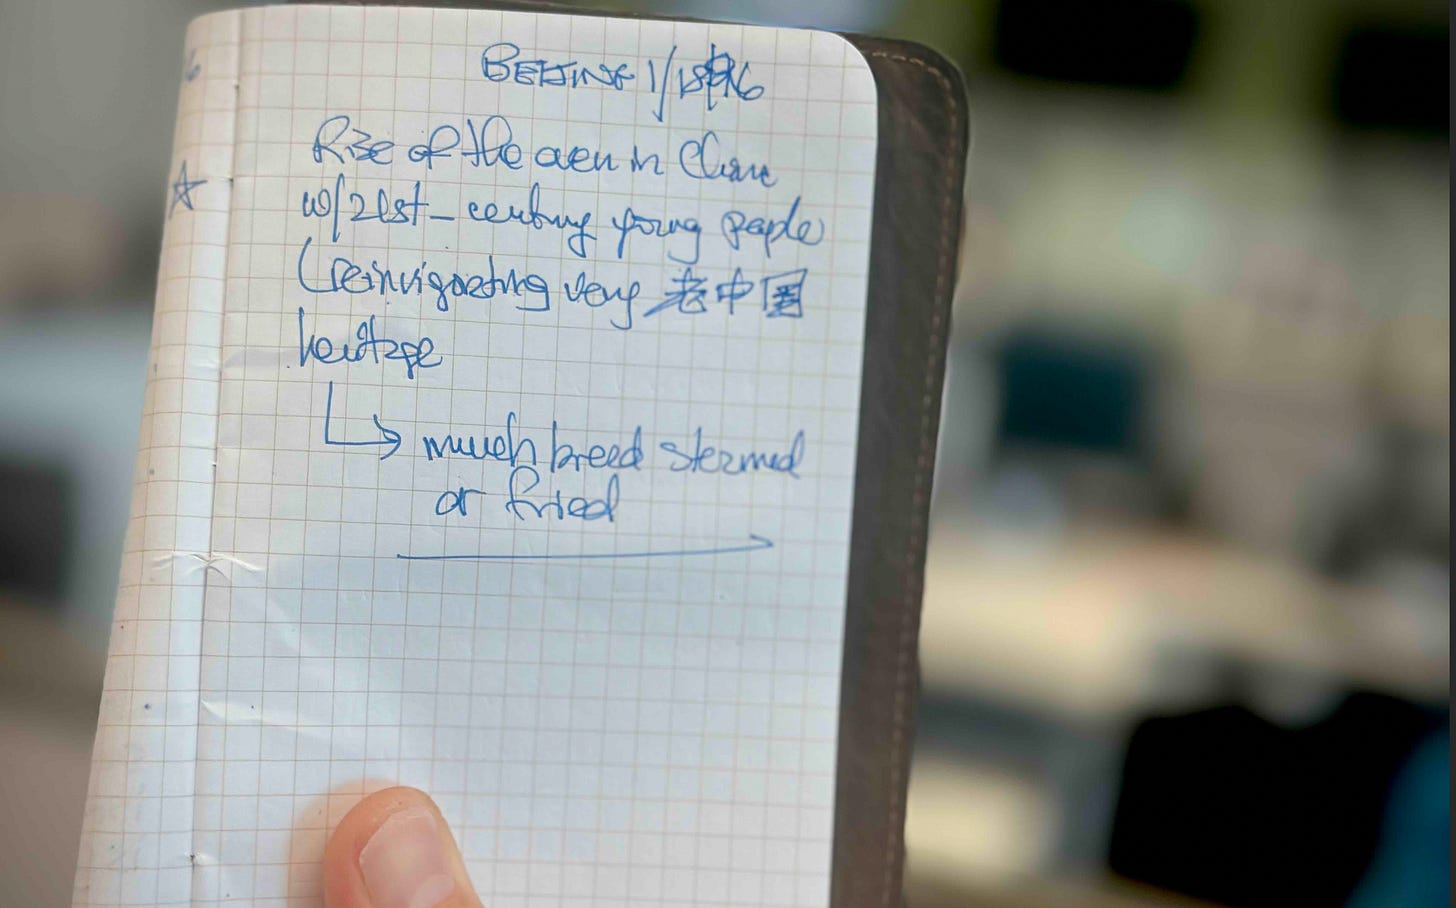 BEIJING 1/
Rise of the oven in China
w/21st-century young people
(reinvigorating very 老中国
heritage
↳ much bread steamed
or fried